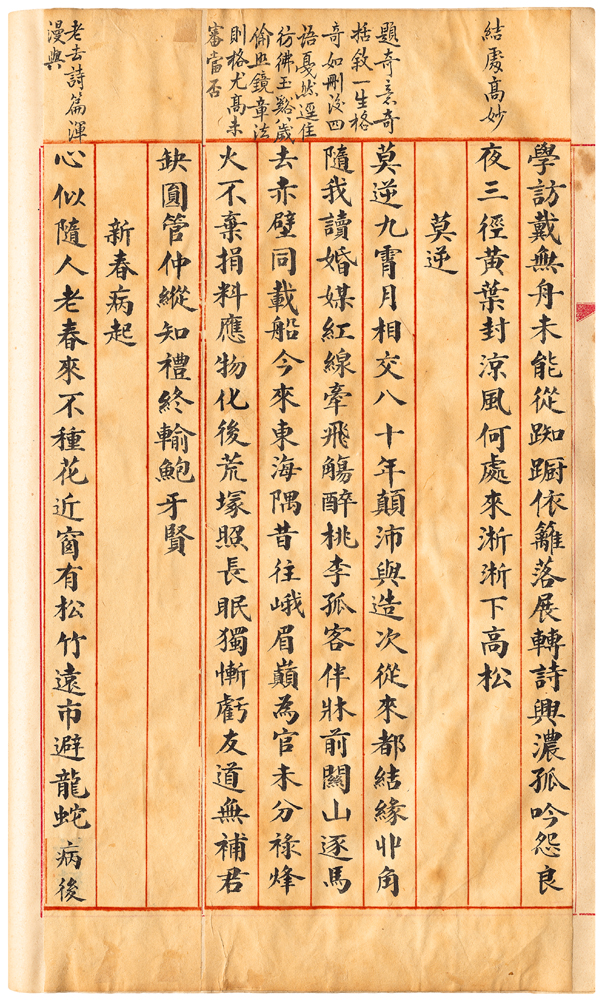 結處高妙
學訪戴無舟未能從踟躕依籬落展轉詩興濃孤吟怨良
夜三徑黃葉封涼風何處來淅淅下高松
莫逆
題奇意奇
括敘一生格
奇如刪後四
語戛然逕住
彷彿玉谿八歲
偷照鏡章法
則格尤高未
審當否
莫逆九霄月相交八十年顛沛與造次從來都結緣丱角
隨我讀婚媒紅線牽飛觴醉桃李孤客伴牀前關山逐馬
去赤壁同載船今來東海隅昔往峨眉巔為官未分祿烽
火不棄捐料應物化後荒塚照長眠獨慚虧友道無補君
缺圓管仲縱知禮終輸鮑牙賢
新春病起
老去詩篇渾
漫與
心似隨人老春來不種花近窗有松竹遠市避龍蛇病後